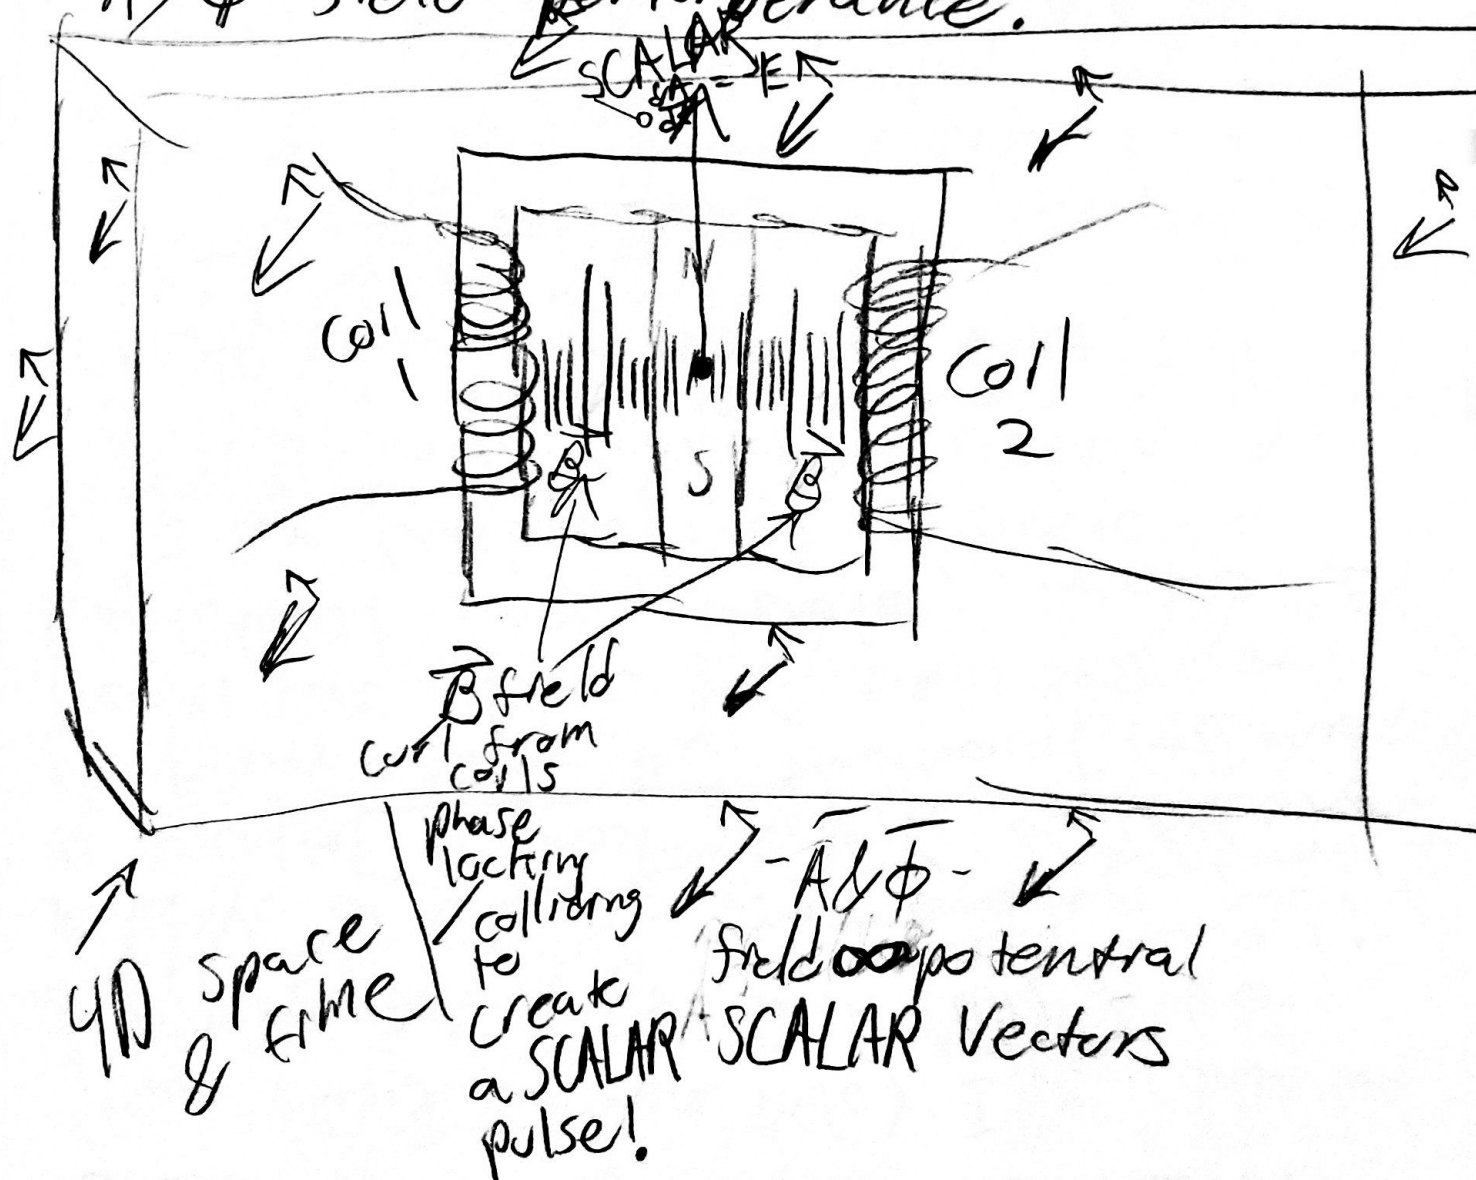 A, φ field
SCALAR
= E
N
Coil
1
Coil
2
S
B
B
B field
curl from
coils
phase
locking
colliding
to
create
a SCALAR
pulse!
4D space
& time
- A & φ -
field ∞ potential
SCALAR Vectors